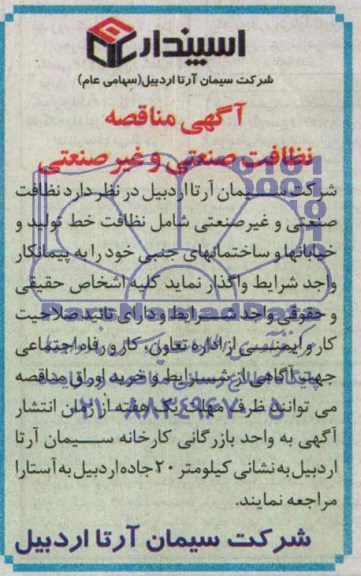 اسپندار
شرکت سیمان آرتا اردبیل(سهامی عام)
آگهی مناقصه
نظافت صنعتی و غیر صنعتی
شرکت سیمان آرتا اردبیل در نظر دارد نظافت
صنعتی و غیر صنعتی شامل نظافت خط تولید و
خیابانها و ساختمانهای جنبی خود را به پیمانکار
واجد شرایط واگذار نماید کلیه اشخاص حقیقی
و حقوقی واجد شرایط و دارای تائید صلاحیت
کار و ایمنی از اداره تعاون، کار و رفاه اجتماعی
جهت آگاهی از شرایط و خرید اوراق مناقصه
می توانند ظرف مهلت یک هفته از زمان انتشار
آگهی به واحد بازرگانی کارخانه سیمان آرتا
اردبیل به نشانی کیلومتر ۲۰ جاده اردبیل به آستارا
مراجعه نمایند.
شرکت سیمان آرتا اردبیل
ParsNamadData
۰۲۱-۸۸۳۴۹۶۷۰